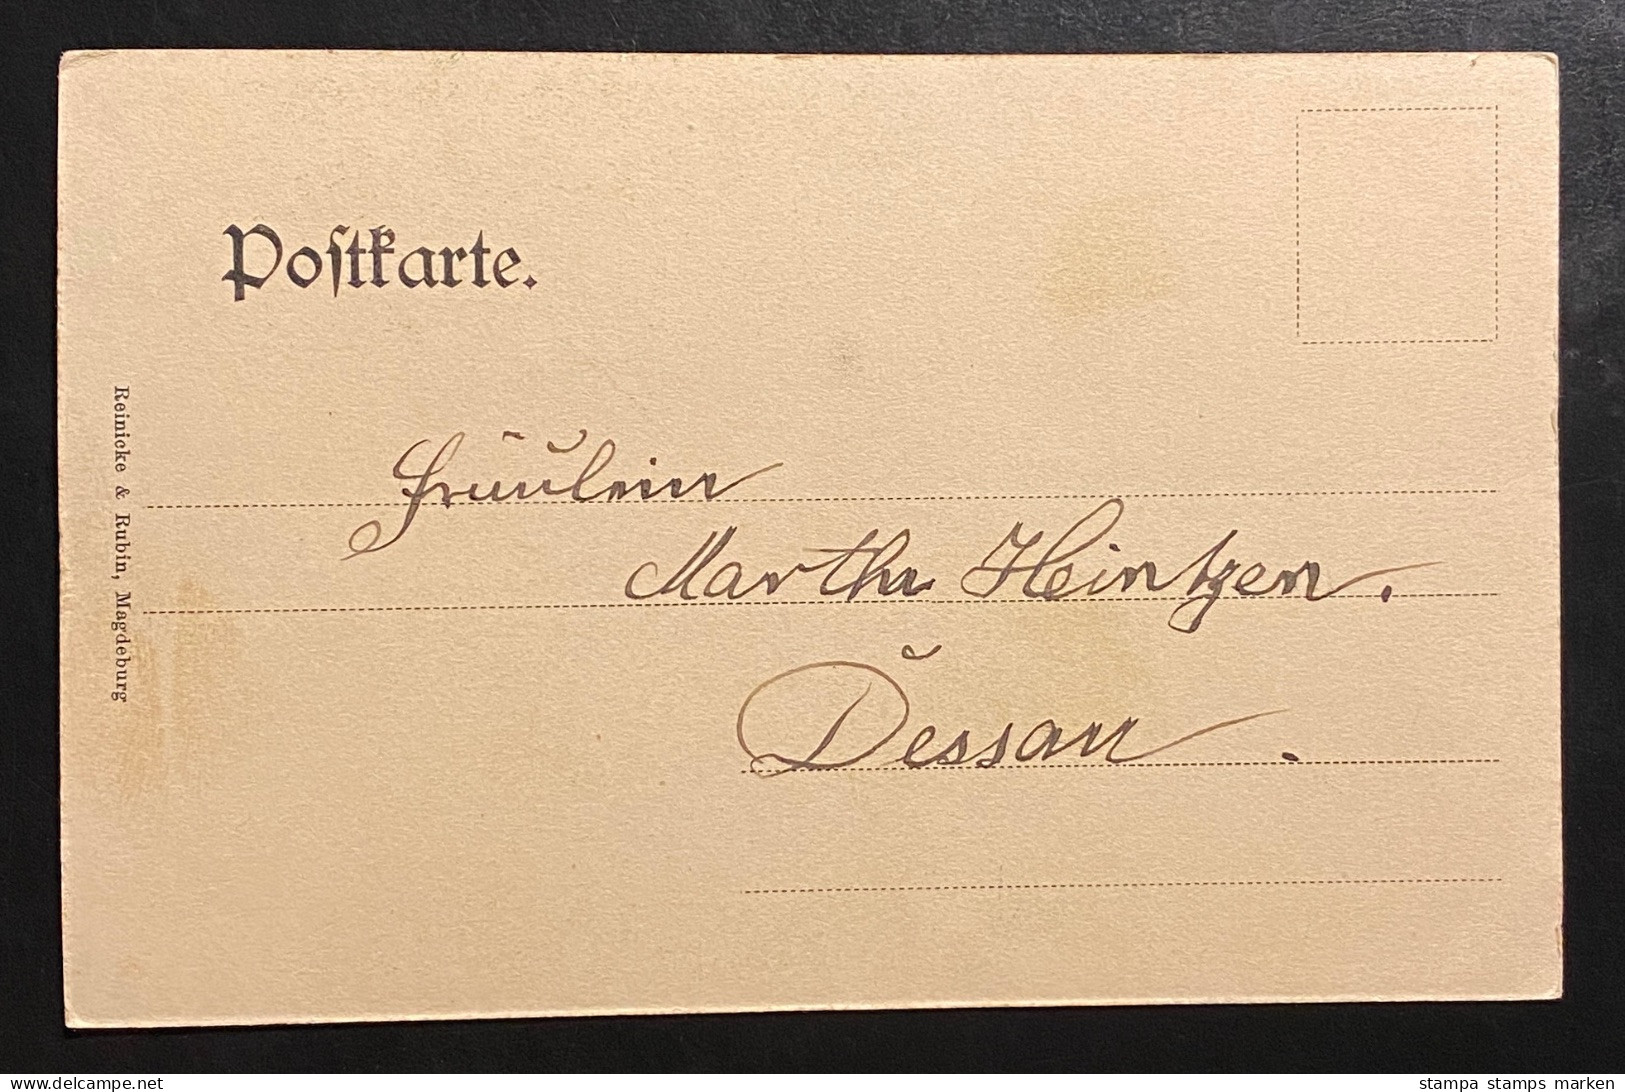 Poſtkarte.
Reinicke & Rubin, Magdeburg
Fräulein
Martha Heintzen.
Dessau.
www.delcampe.net
stampa stamps stamps marken